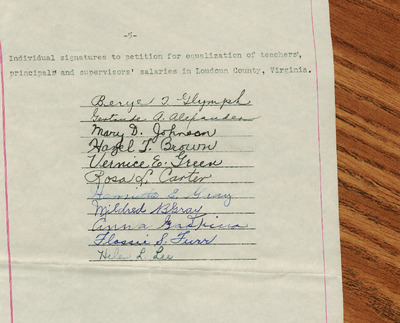 -5-
Individual signatures to petition for equalization of teachers',
principals' and supervisors' salaries in Loudoun County, Virginia.
Berye T. Glymph
Gertrude A. Alexander
Mary D. Johnson
Hazel T. Brown
Vernice E. Green
Rosa L. Carter
Henrietta E. Gray
Mildred B Gray
Anna Gaskins
Flossie S. Furr
Helen L. Lee